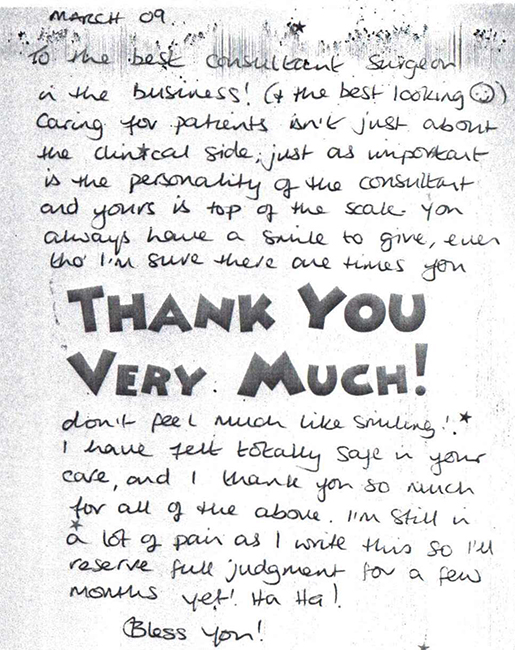 MARCH 09.
To the best consultant surgeon
in the business! (& the best looking ☺)
Caring for patients isn't just about
the clinical side, just as important
is the personality of the consultant
and yours is top of the scale. You
always have a smile to give, even
tho' I'm sure there are times you
THANK YOU
VERY MUCH!
don't feel much like smiling!
I have felt totally safe in your
care, and I thank you so much
for all of the above. I'm still in
a lot of pain as I write this so I'll
reserve full judgment for a few
months yet! Ha Ha!
Bless you!